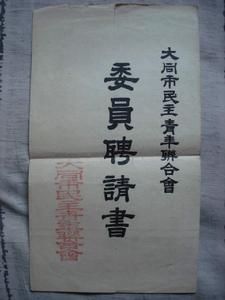 大同市民主青年聯合會
委員聘請書
大同市民主青年聯合會